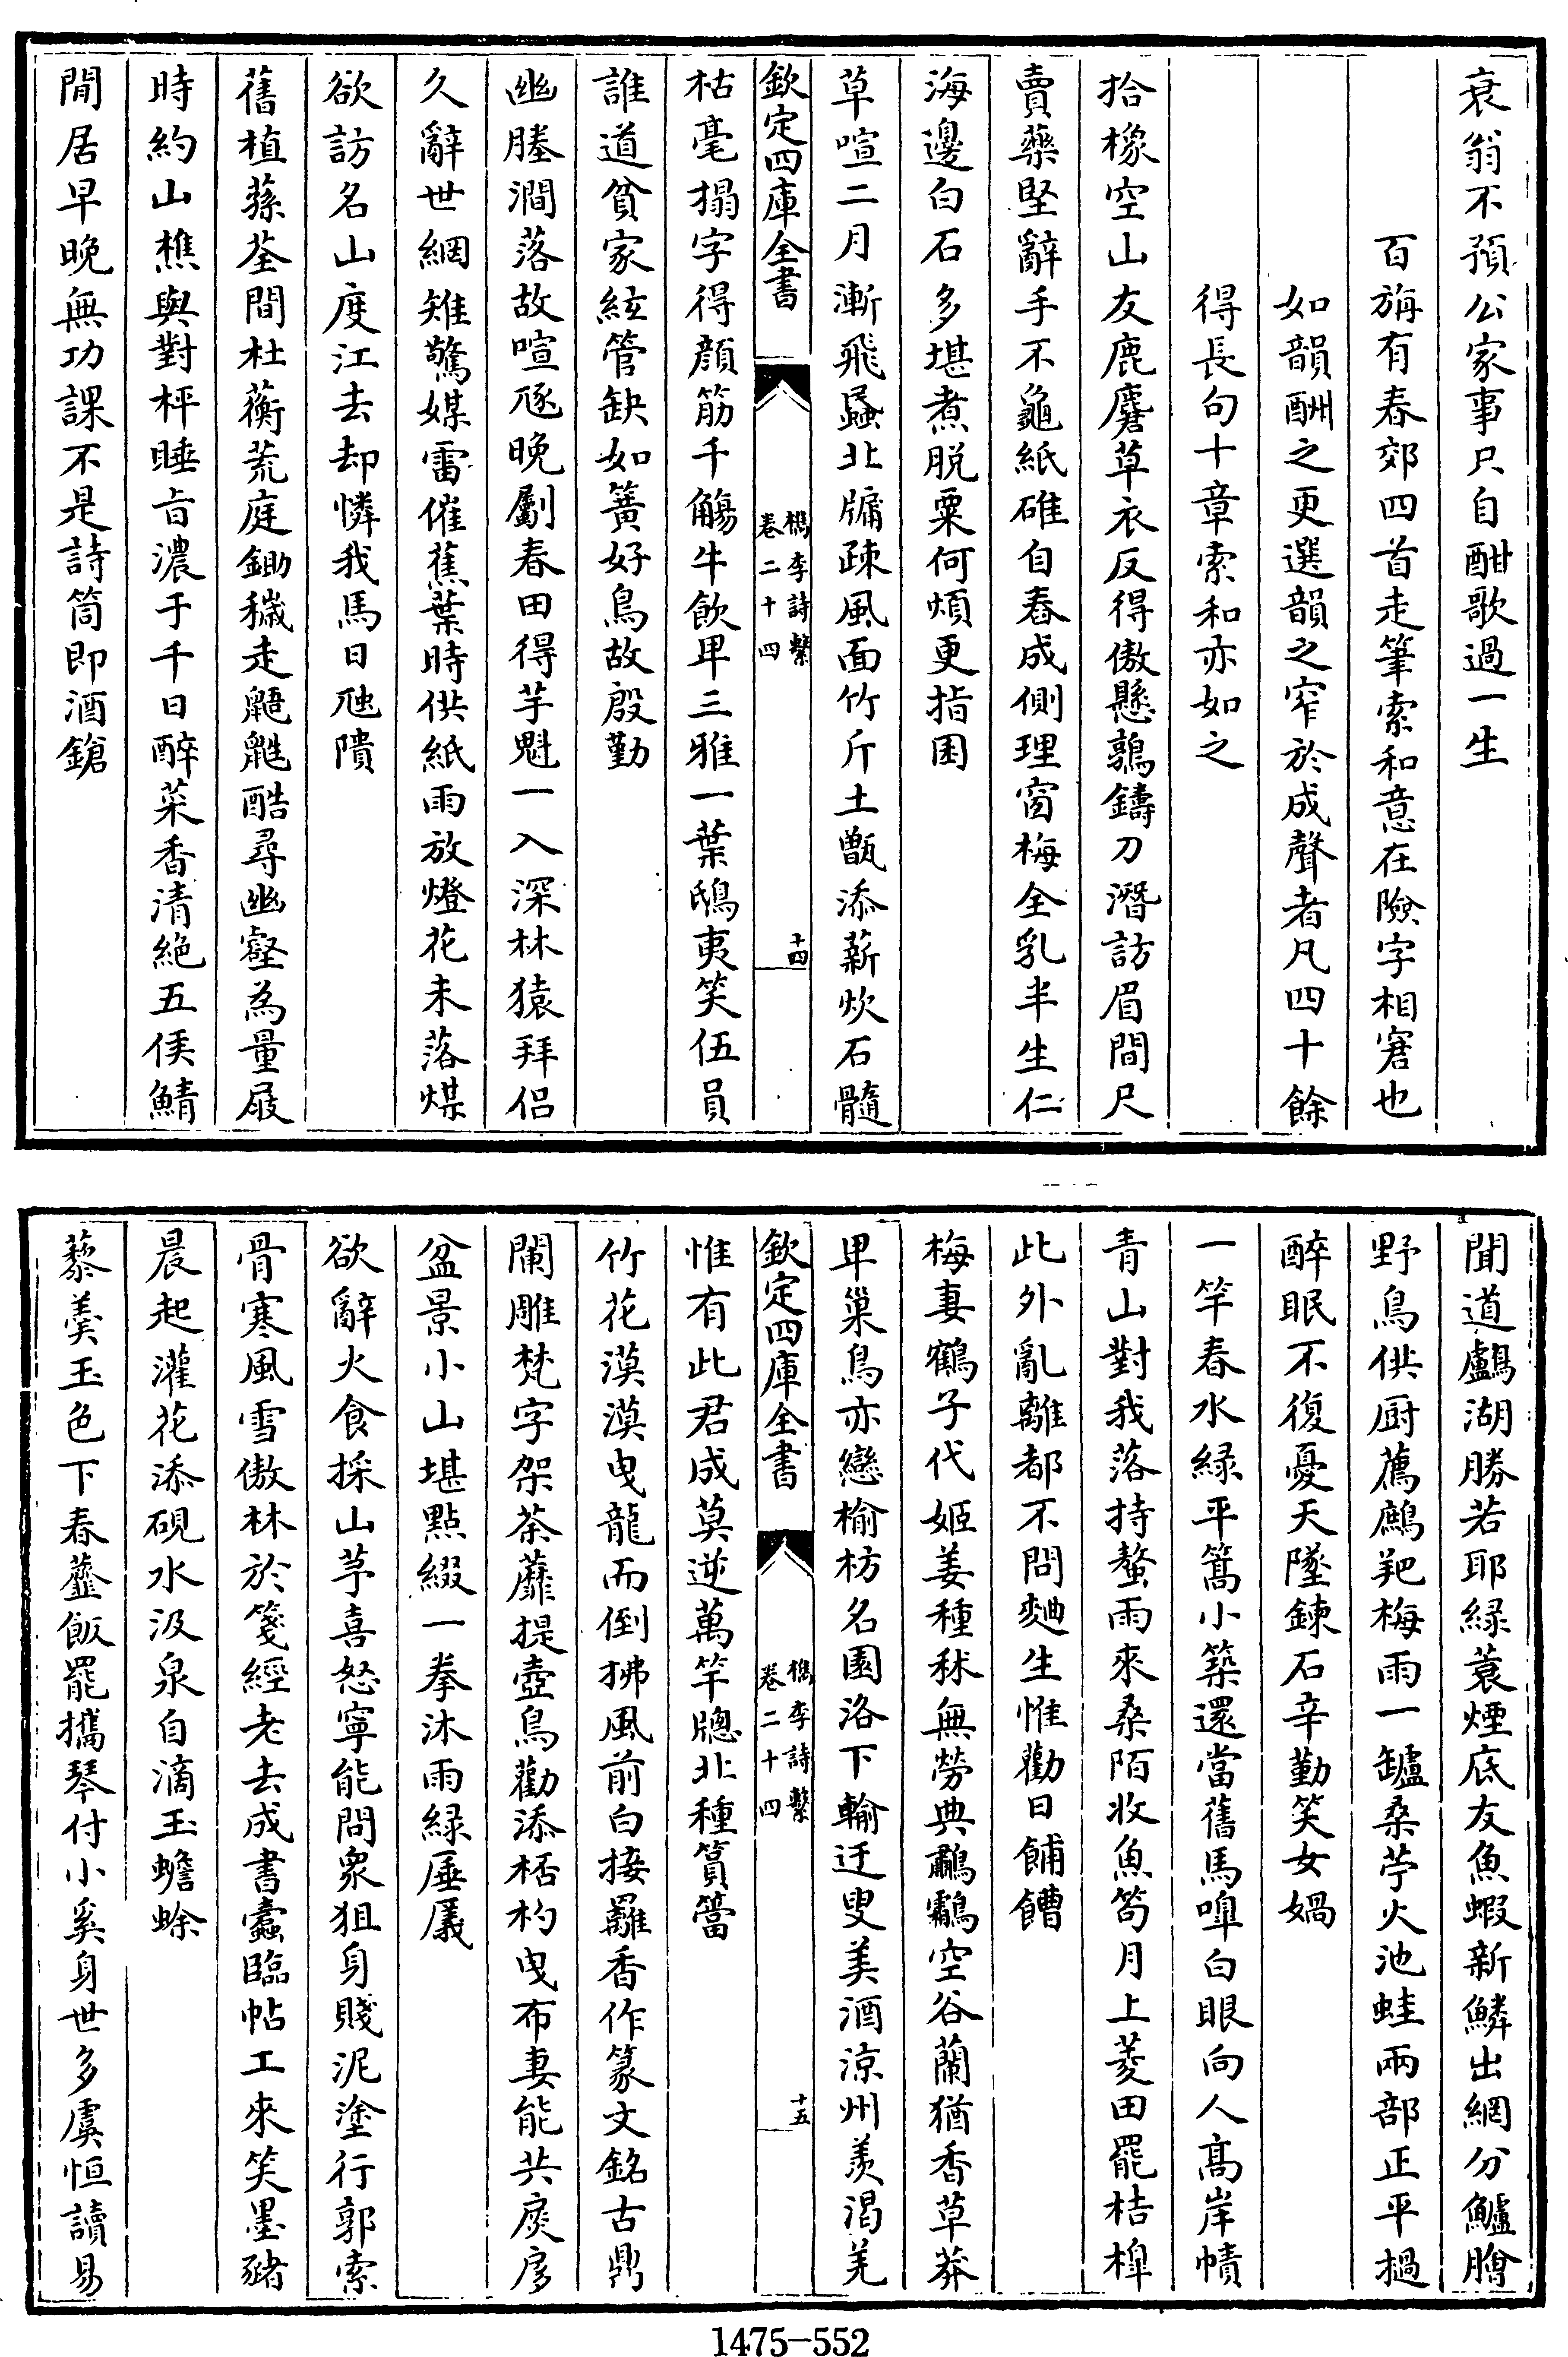 衰翁不預公家事只自酣歌過一生
百旃有春郊四首走筆索和意在險字相窘也
如韻酬之更選韻之窄於成聲者凡四十餘
得長句十章索和亦如之
拾橡空山友鹿麛草衣反得傲懸鶉鑄刀潛訪眉間尺
賣藥堅辭手不龜紙碓自舂成側理窗梅全乳半生仁
海邊白石多堪煮脱粟何煩更指囷
草喧二月漸飛蝨北牖疎風面竹斤土甑添薪炊石髓
欽定四庫全書
檇李詩繫
卷二十四
十四
枯毫搨字得顔筋千觴牛飲卑三雅一葉鴟夷笑伍員
誰道貧家絃管缺如簧好鳥故殷勤
幽塍澗落故喧豗晚劚春田得芋魁一入深林猿拜侣
久辭世網雉驚媒雷催蕉葉時供紙雨放燈花未落煤
欲訪名山度江去却憐我馬日虺隤
舊植蓀荃間杜蘅荒庭鋤穢走鼯鼪酷尋幽壑為量屐
時約山樵與對枰睡㫖濃于千日醉菜香清絶五侯鯖
閒居早晚無功課不是詩筒即酒鎗
聞道鸕湖勝若耶緑蓑煙底友魚蝦新鱗出網分鱸膾
野鳥供厨薦鷓羓梅雨一罏桑苧火池蛙兩部正平撾
醉眠不復憂天墜鍊石辛勤笑女媧
一竿春水緑平篙小築還當舊馬嘷白眼向人髙岸幘
青山對我落持螯雨來桑陌收魚笱月上菱田罷桔槔
此外亂離都不問麯生惟勸日餔糟
梅妻鶴子代姬姜種秫無勞典鷫鸘空谷蘭猶香草莽
卑巢鳥亦戀榆枋名園洛下輸迂叟美酒涼州羨渇羌
欽定四庫全書
檇李詩繫
卷二十四
十五
惟有此君成莫逆萬竿牕北種篔簹
竹花漠漠曳龍而倒拂風前白接䍦香作篆文銘古鼎
闌雕梵字架荼蘼提壺鳥勸添桮杓曳布妻能共扊扅
盆景小山堪點綴一拳沐雨緑㕒㕒
欲辭火食採山芧喜怒寧能問衆狙身賤泥塗行郭索
骨寒風雪傲林於箋經老去成書蠧臨帖工來笑墨豬
晨起灌花添硯水汲泉自滴玉蟾蜍
藜羮玉色下春虀飯罷攜琴付小奚身世多虞恒讀易
1475-552